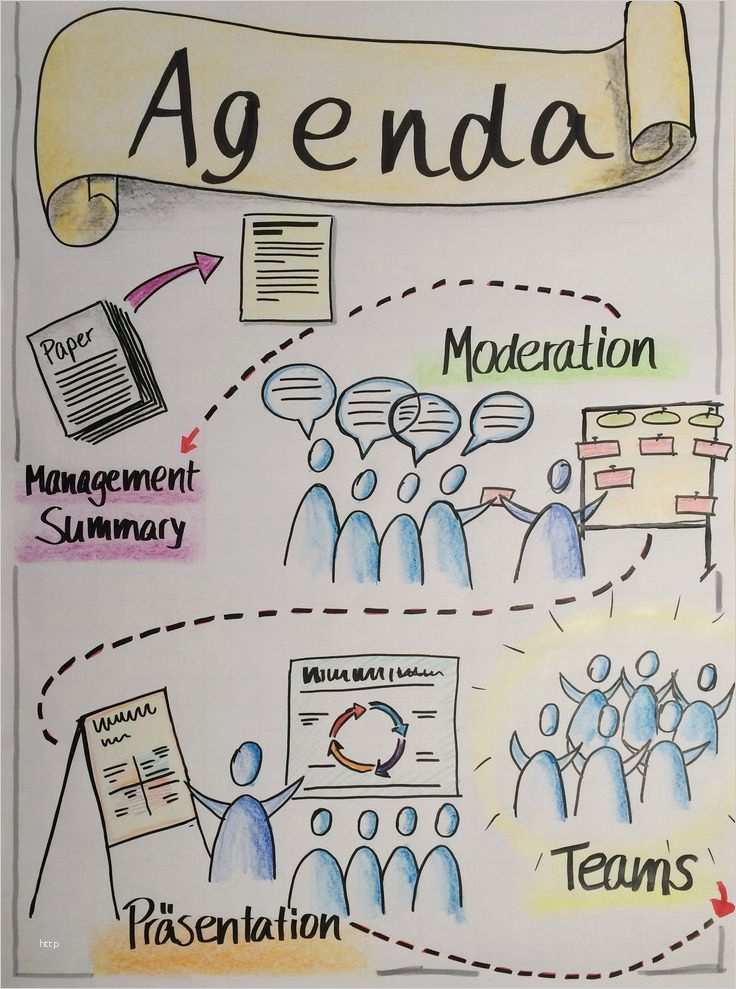 Agenda
Paper
Moderation
Management
Summary
Teams
Präsentation
http